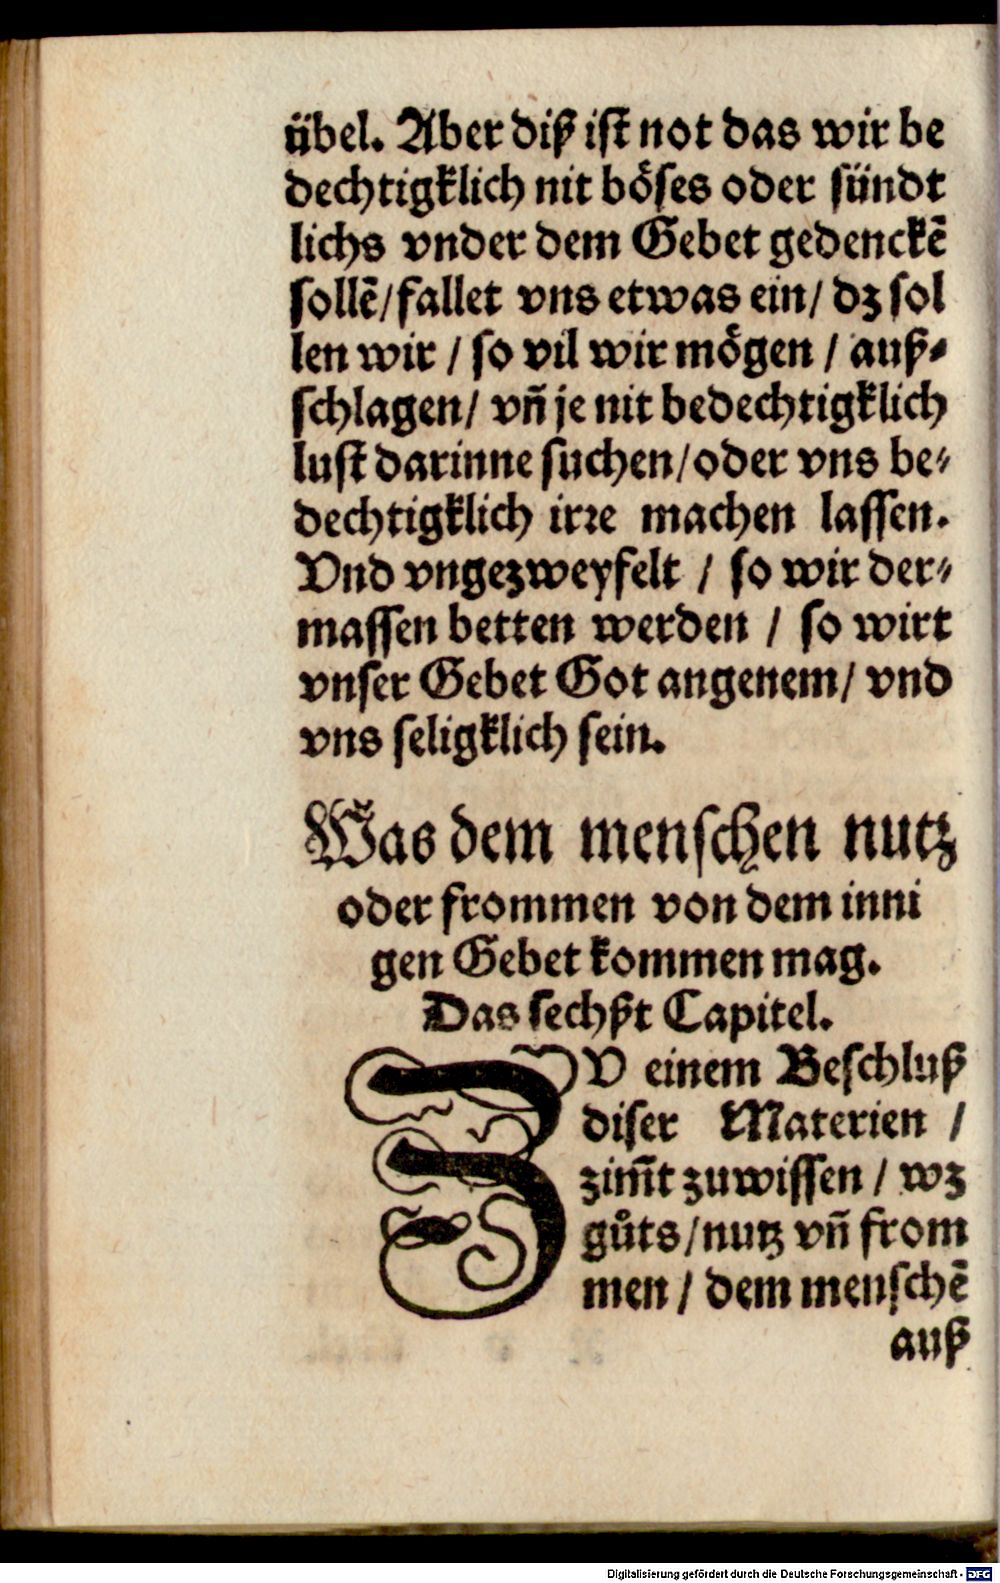 übel. Aber diß ist not das wir be
dechtigklich nit böses oder sündt
lichs vnder dem Gebet gedenckē
sollē/fallet vns etwas ein/ dz sol
len wir / so vil wir mögen / auß-
schlagen/ vñ je nit bedechtigklich
lust darinne suchen/oder vns be-
dechtigklich irre machen lassen.
Vnd vngezweyfelt / so wir der-
massen betten werden / so wirt
vnser Gebet Got angenem/ vnd
vns seligklich sein.
Was dem menschen nutz
oder frommen von dem inni
gen Gebet kommen mag.
Das sechßt Capitel.
ZV einem Beschluß
diser Materien /
zim̄t zuwissen / wz
gůts/nutz vñ from
men / dem menschē
auß
Digitalisierung gefördert durch die Deutsche Forschungsgemeinschaft - DFG